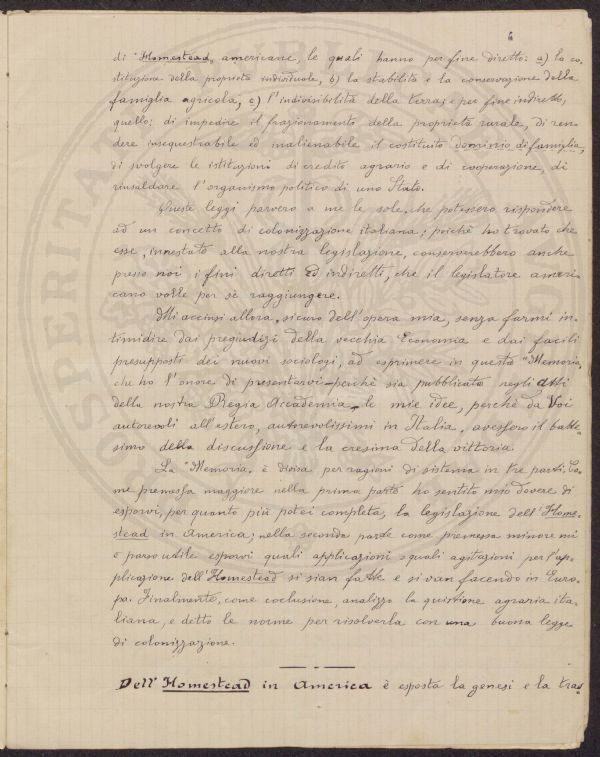 6
di "Homestead" americane, le quali hanno per fine diretto: a) la co-
stituzione della proprietà individuale, b) la stabilità e la conservazione della
famiglia agricola, c) l'indivisibilità della terra; e per fine indiretto,
quello: di impedire il frazionamento della proprietà rurale, di ren-
dere insequestrabile ed inalienabile il costituito dominio di famiglia,
di svolgere le istituzioni di credito agrario e di cooperazione, di
rinsaldare l'organismo politico di uno Stato.
Queste leggi parvero a me le sole, che potessero rispondere
ad un concetto di colonizzazione italiana; poichè ho trovato che
esse, innestate alla nostra legislazione, conserverebbero anche
presso noi i fini diretti ed indiretti, che il legislatore ameri-
cano volle per sè raggiungere.
Mi accinsi allora, sicuro dell'opera mia, senza farmi in-
timidire dai pregiudizi della vecchia Economia e dai facili
presupposti dei nuovi sociologi, ad esprimere in questa "Memoria"
che ho l'onore di presentarvi - perchè sia pubblicata negli Atti
della nostra Regia Accademia - le mie idee, perchè da Voi
autorevoli all'estero, autorevolissimi in Italia, avessero il batte-
simo della discussione e la cresima della vittoria.
La "Memoria" è divisa per ragioni di sistema in tre parti. Co-
me premessa maggiore nella prima parte ho sentito mio dovere di
esporvi, per quanto più potei completa, la legislazione dell'Home-
stead in America; nella seconda parte come premessa minore mi
è parso utile esporvi quali applicazioni e quali agitazioni per l'ap-
plicazione dell'Homestead si sian fatte e si van facendo in Euro-
pa. Finalmente, come coclusione, analizzo la quistione agraria ita-
liana, e detto le norme per risolverla con una buona legge
di colonizzazione.
Dell'Homestead in America è esposta la genesi e la tras-